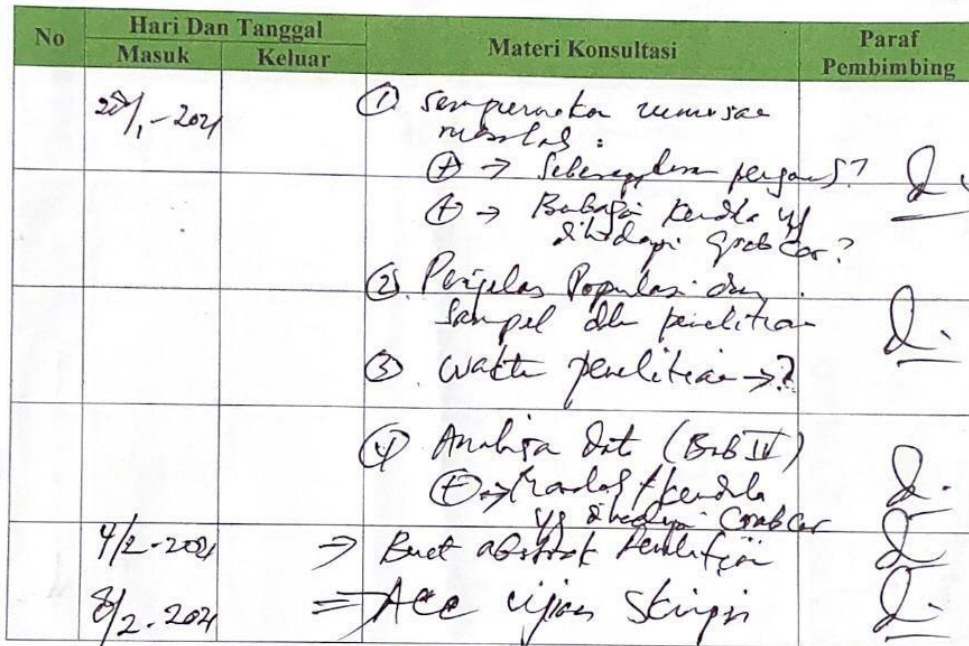 No Hari Dan Tanggal Materi Konsultasi Paraf Pembimbing
Masuk Keluar
28/1-2021 ① Sempurnakan rumusan
masalah :
⊕ → Seberapa besar pengaruh?
⊕ → Berbagai kendala yg
dihadapi GrabCar?
②. Perjelas Populasi dan
Sampel dlm penelitian
③ Waktu penelitian →?
④ Analisa Data (Bab IV)
⊕ → /kendala
yg dihadapi GrabCar
4/2-2021 → Buat abstrak Penelitian
8/2-2021 ⇒ Acc ujian Skripsi